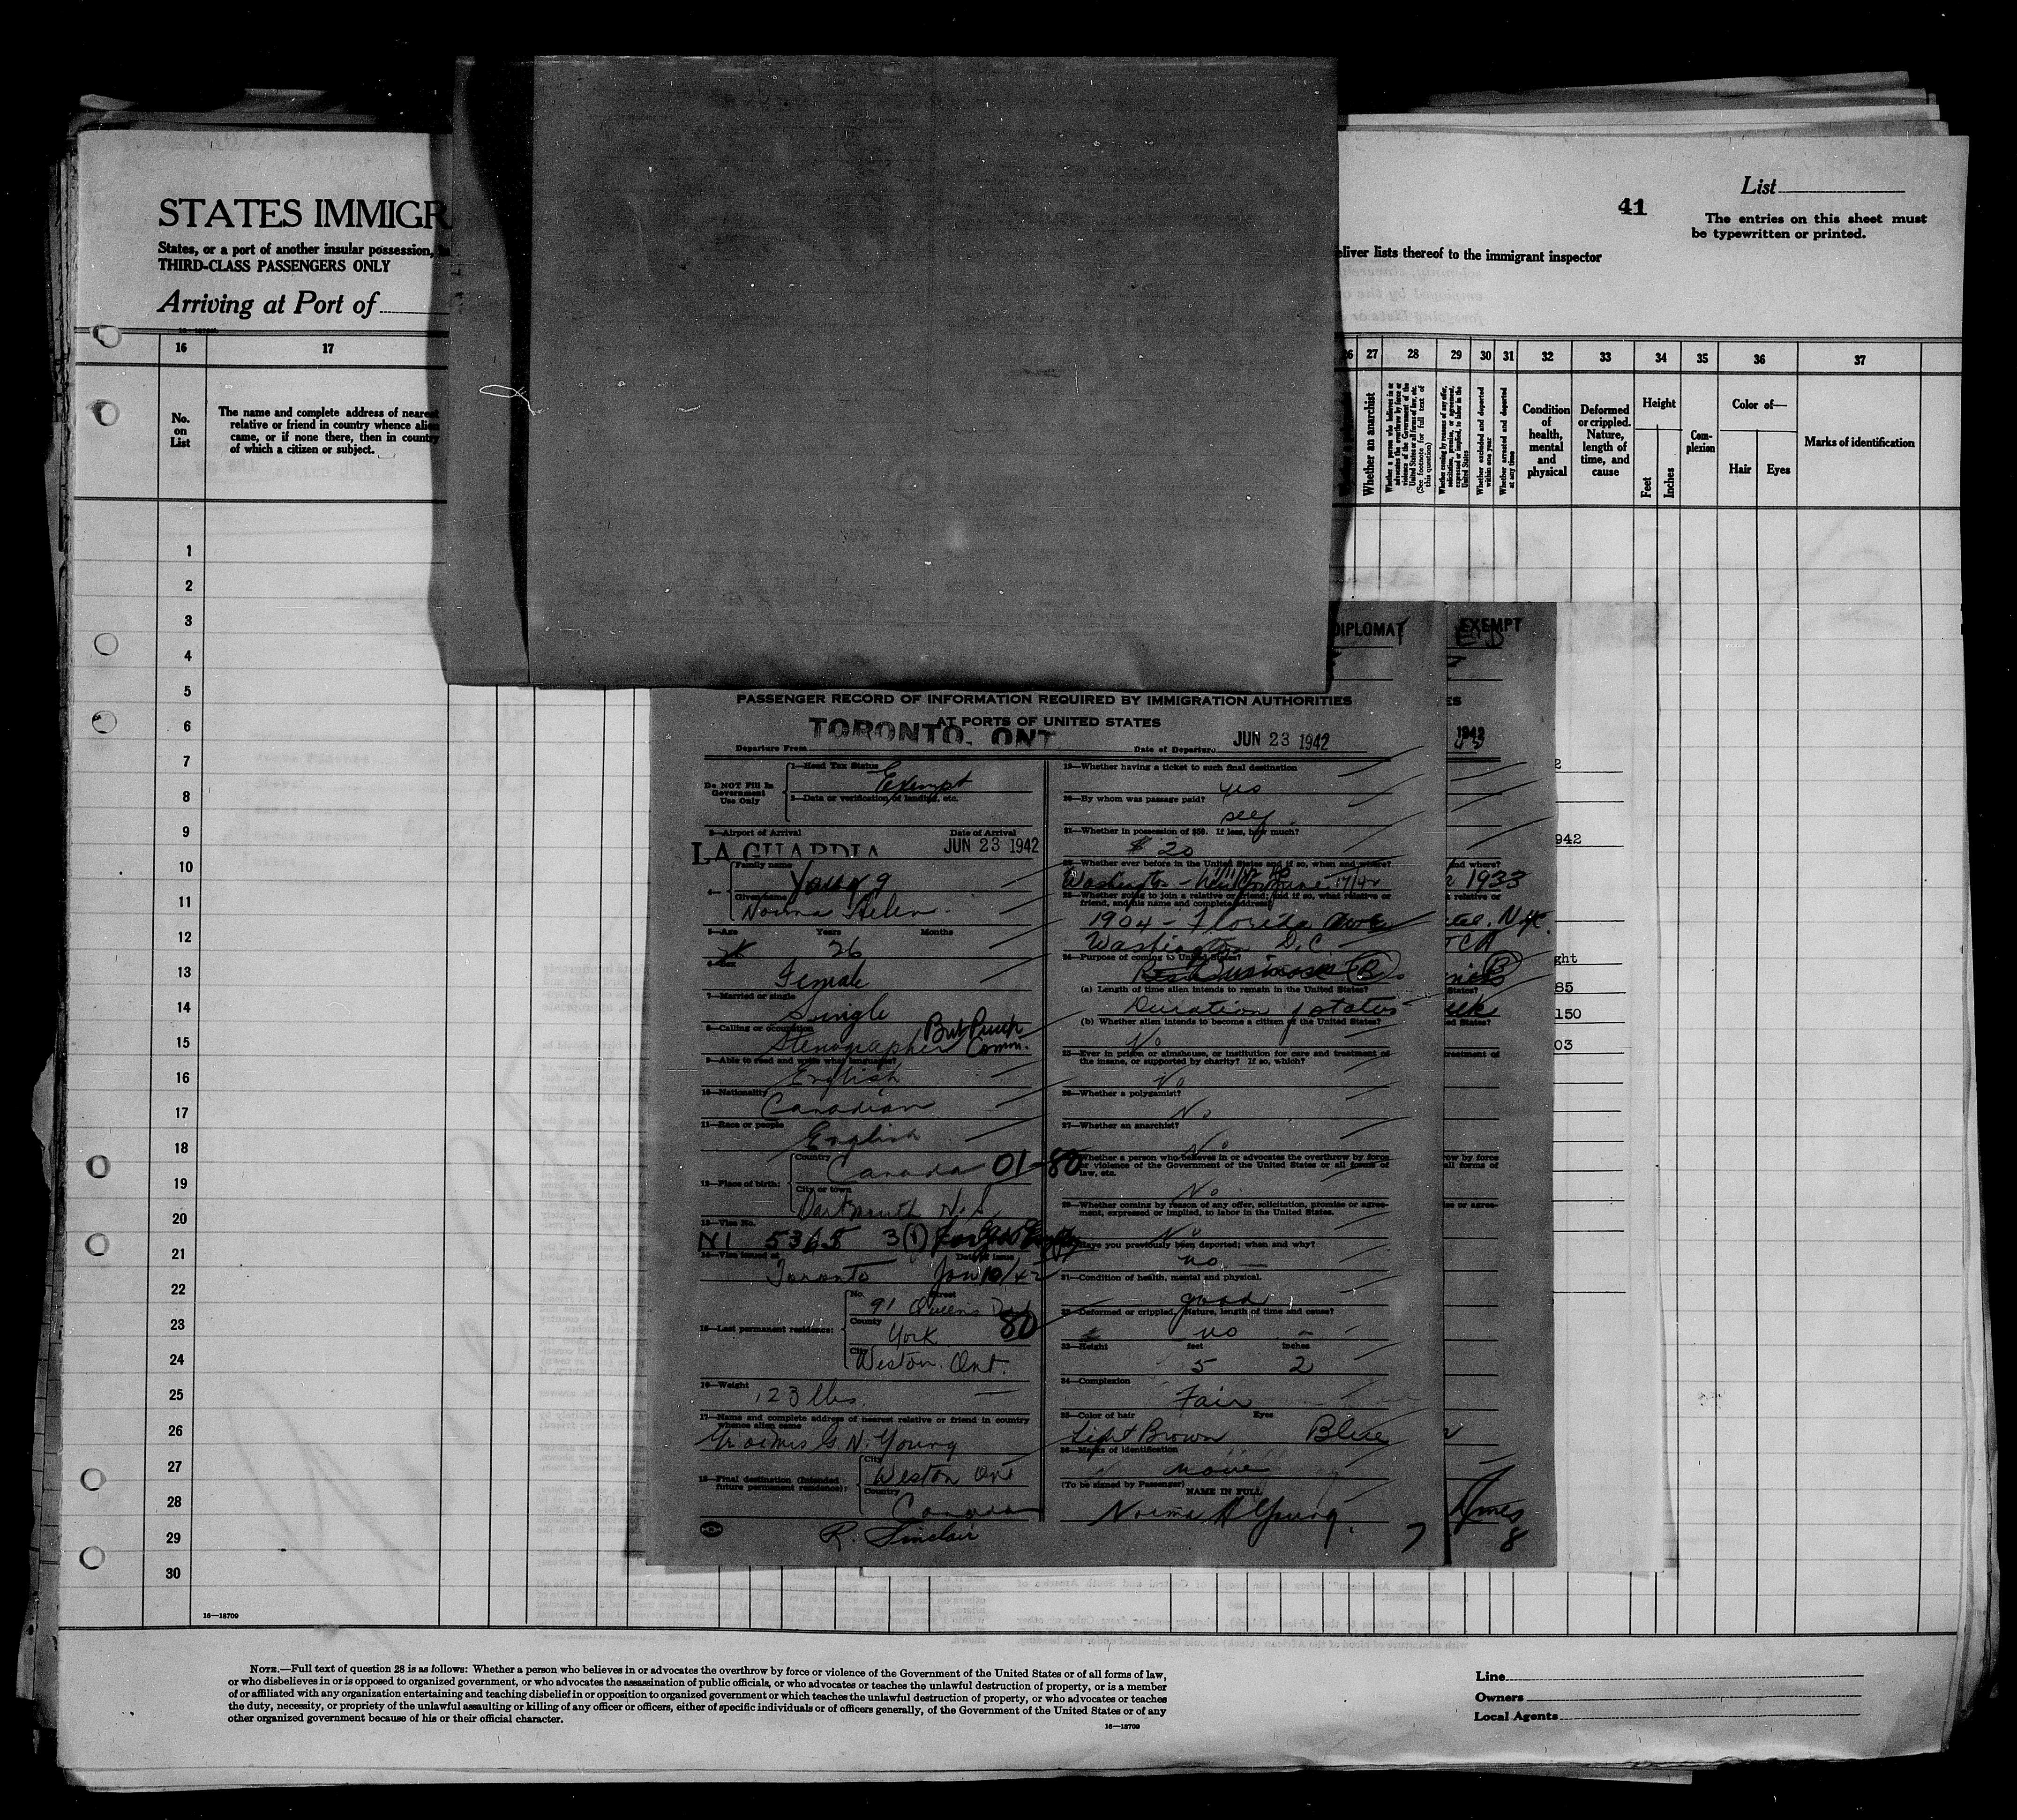 STATES IMMIGR
States, or a port of another insular possession,
THIRD-CLASS PASSENGERS ONLY
Arriving at Port of
eliver lists thereof to the immigrant inspector
41
List
The entries on this sheet must
be typewritten or printed.
16 17 27 28 29 30 31 32 33 34 35 36 37
No.
on
List
The name and complete address of nearest
relative or friend in country whence alien
came, or if none there, then in country
of which a citizen or subject.
Whether an anarchist
Whether a person who believes in or
advocates the overthrow by force or
violence of the Government of the
United States or all forms of law, etc.
(See footnote for full text of
this question)
Whether coming by reason of any offer,
solicitation, promise, or agreement,
expressed or implied, to labor in the
United States
Whether excluded and deported
within one year
Whether arrested and deported
at any time
Condition
of
health,
mental
and
physical
Deformed
or crippled.
Nature,
length of
time, and
cause
Height
Feet
Inches
Com-
plexion
Color of—
Hair
Eyes
Marks of identification
1
2
3
4
5
6
7
8
9
10
11
12
13
14
15
16
17
18
19
20
21
22
23
24
25
26
27
28
29
30
16—18709
DIPLOMAT
EXEMPT
PASSENGER RECORD OF INFORMATION REQUIRED BY IMMIGRATION AUTHORITIES
AT PORTS OF UNITED STATES
TORONTO, ONT
Departure From
Date of Departure JUN 23 1942
Do NOT Fill In
Government
Use Only
1—Head Tax Status
Exempt
2—Date or verification of landing, etc.
3—Airport of Arrival
Date of Arrival
LA GUARDIA JUN 23 1942
4—
Family name
Young
Given name
Norma Helen
5—Age Years Months
26
6—Sex
Female
7—Married or single
Single
8—Calling or occupation
Stenographer
Comm.
9—Able to read and write what language?
English
10—Nationality
Canadian
11—Race or people
English
12—Place of birth:
Country
Canada 01-80
City or town
Dartmouth N.S
13—Visa No.
NI 5365 3 (1)
14—Visa issued at
Date of issue
Toronto Jan 10/42
15—Last permanent residence:
No. Street
91 Queens
County
York 80
City
Weston. Ont.
16—Weight
123 lbs.
17—Name and complete address of nearest relative or friend in country
whence alien came
G. N. Young
18—Final destination (Intended
future permanent residence):
City
Weston Ont
Country
Canada
R. Sinclair
19—Whether having a ticket to such final destination
yes
20—By whom was passage paid?
self
21—Whether in possession of $50. If less, how much?
$ 20
22—Whether ever before in the United States and if so, when and where?
Washington
23—Whether going to join a relative or friend; and if so, what relative or
friend, and his name and complete address?
1904 - Florida Ave
Washington D.C
24—Purpose of coming to United States?
(a) Length of time alien intends to remain in the United States?
Duration of status
(b) Whether alien intends to become a citizen of the United States?
No
25—Ever in prison or almshouse, or institution for care and treatment of
the insane, or supported by charity? If so, which?
No
26—Whether a polygamist?
No
27—Whether an anarchist?
No
Whether a person who believes in or advocates the overthrow by force
or violence of the Government of the United States or all forms of
law, etc.
No
29—Whether coming by reason of any offer, solicitation, promise or agree-
ment, expressed or implied, to labor in the United States.
No
Have you previously been deported; when and why?
no
31—Condition of health, mental and physical.
good
32—Deformed or crippled. Nature, length of time and cause?
no
33—Height feet inches
5 2
34—Complexion
Fair
35—Color of hair Eyes
Light Brown Blue
36—Marks of identification
none
(To be signed by Passenger)
NAME IN FULL
Norma H Young.
7
ES
1942
and where?
1933
relative or
N.Y.
TCA
States?
ed States?
treatment of
row by force
all forms of
se or agree-
8
2
942
ght
85
150
03
NOTE.—Full text of question 28 is as follows: Whether a person who believes in or advocates the overthrow by force or violence of the Government of the United States or of all forms of law,
or who disbelieves in or is opposed to organized government, or who advocates the assassination of public officials, or who advocates or teaches the unlawful destruction of property, or is a member
of or affiliated with any organization entertaining and teaching disbelief in or opposition to organized government or which teaches the unlawful destruction of property, or who advocates or teaches
the duty, necessity, or propriety of the unlawful assaulting or killing of any officer or officers, either of specific individuals or of officers generally, of the Government of the United States or of any
other organized government because of his or their official character.
16—18709
Line
Owners
Local Agents